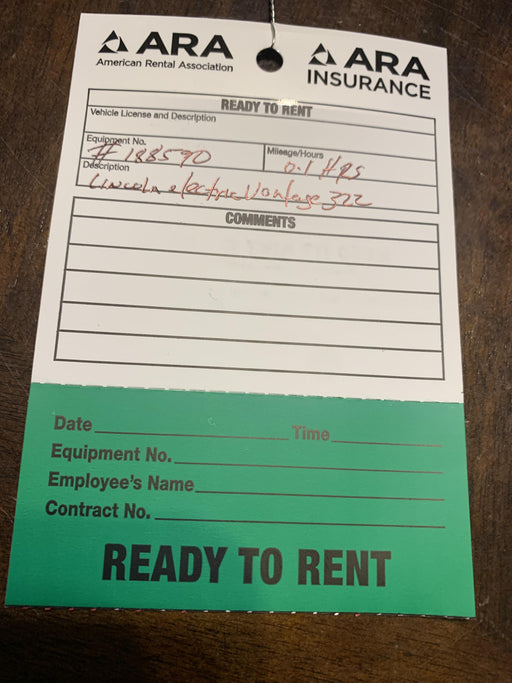 ARA
American Rental Association
ARA
INSURANCE
READY TO RENT
Vehicle License and Description
Equipment No.
# 188590
Mileage/Hours
0.1 HRS
Description
Lincoln electric Vantage 322
COMMENTS
Date
Time
Equipment No.
Employee's Name
Contract No.
READY TO RENT